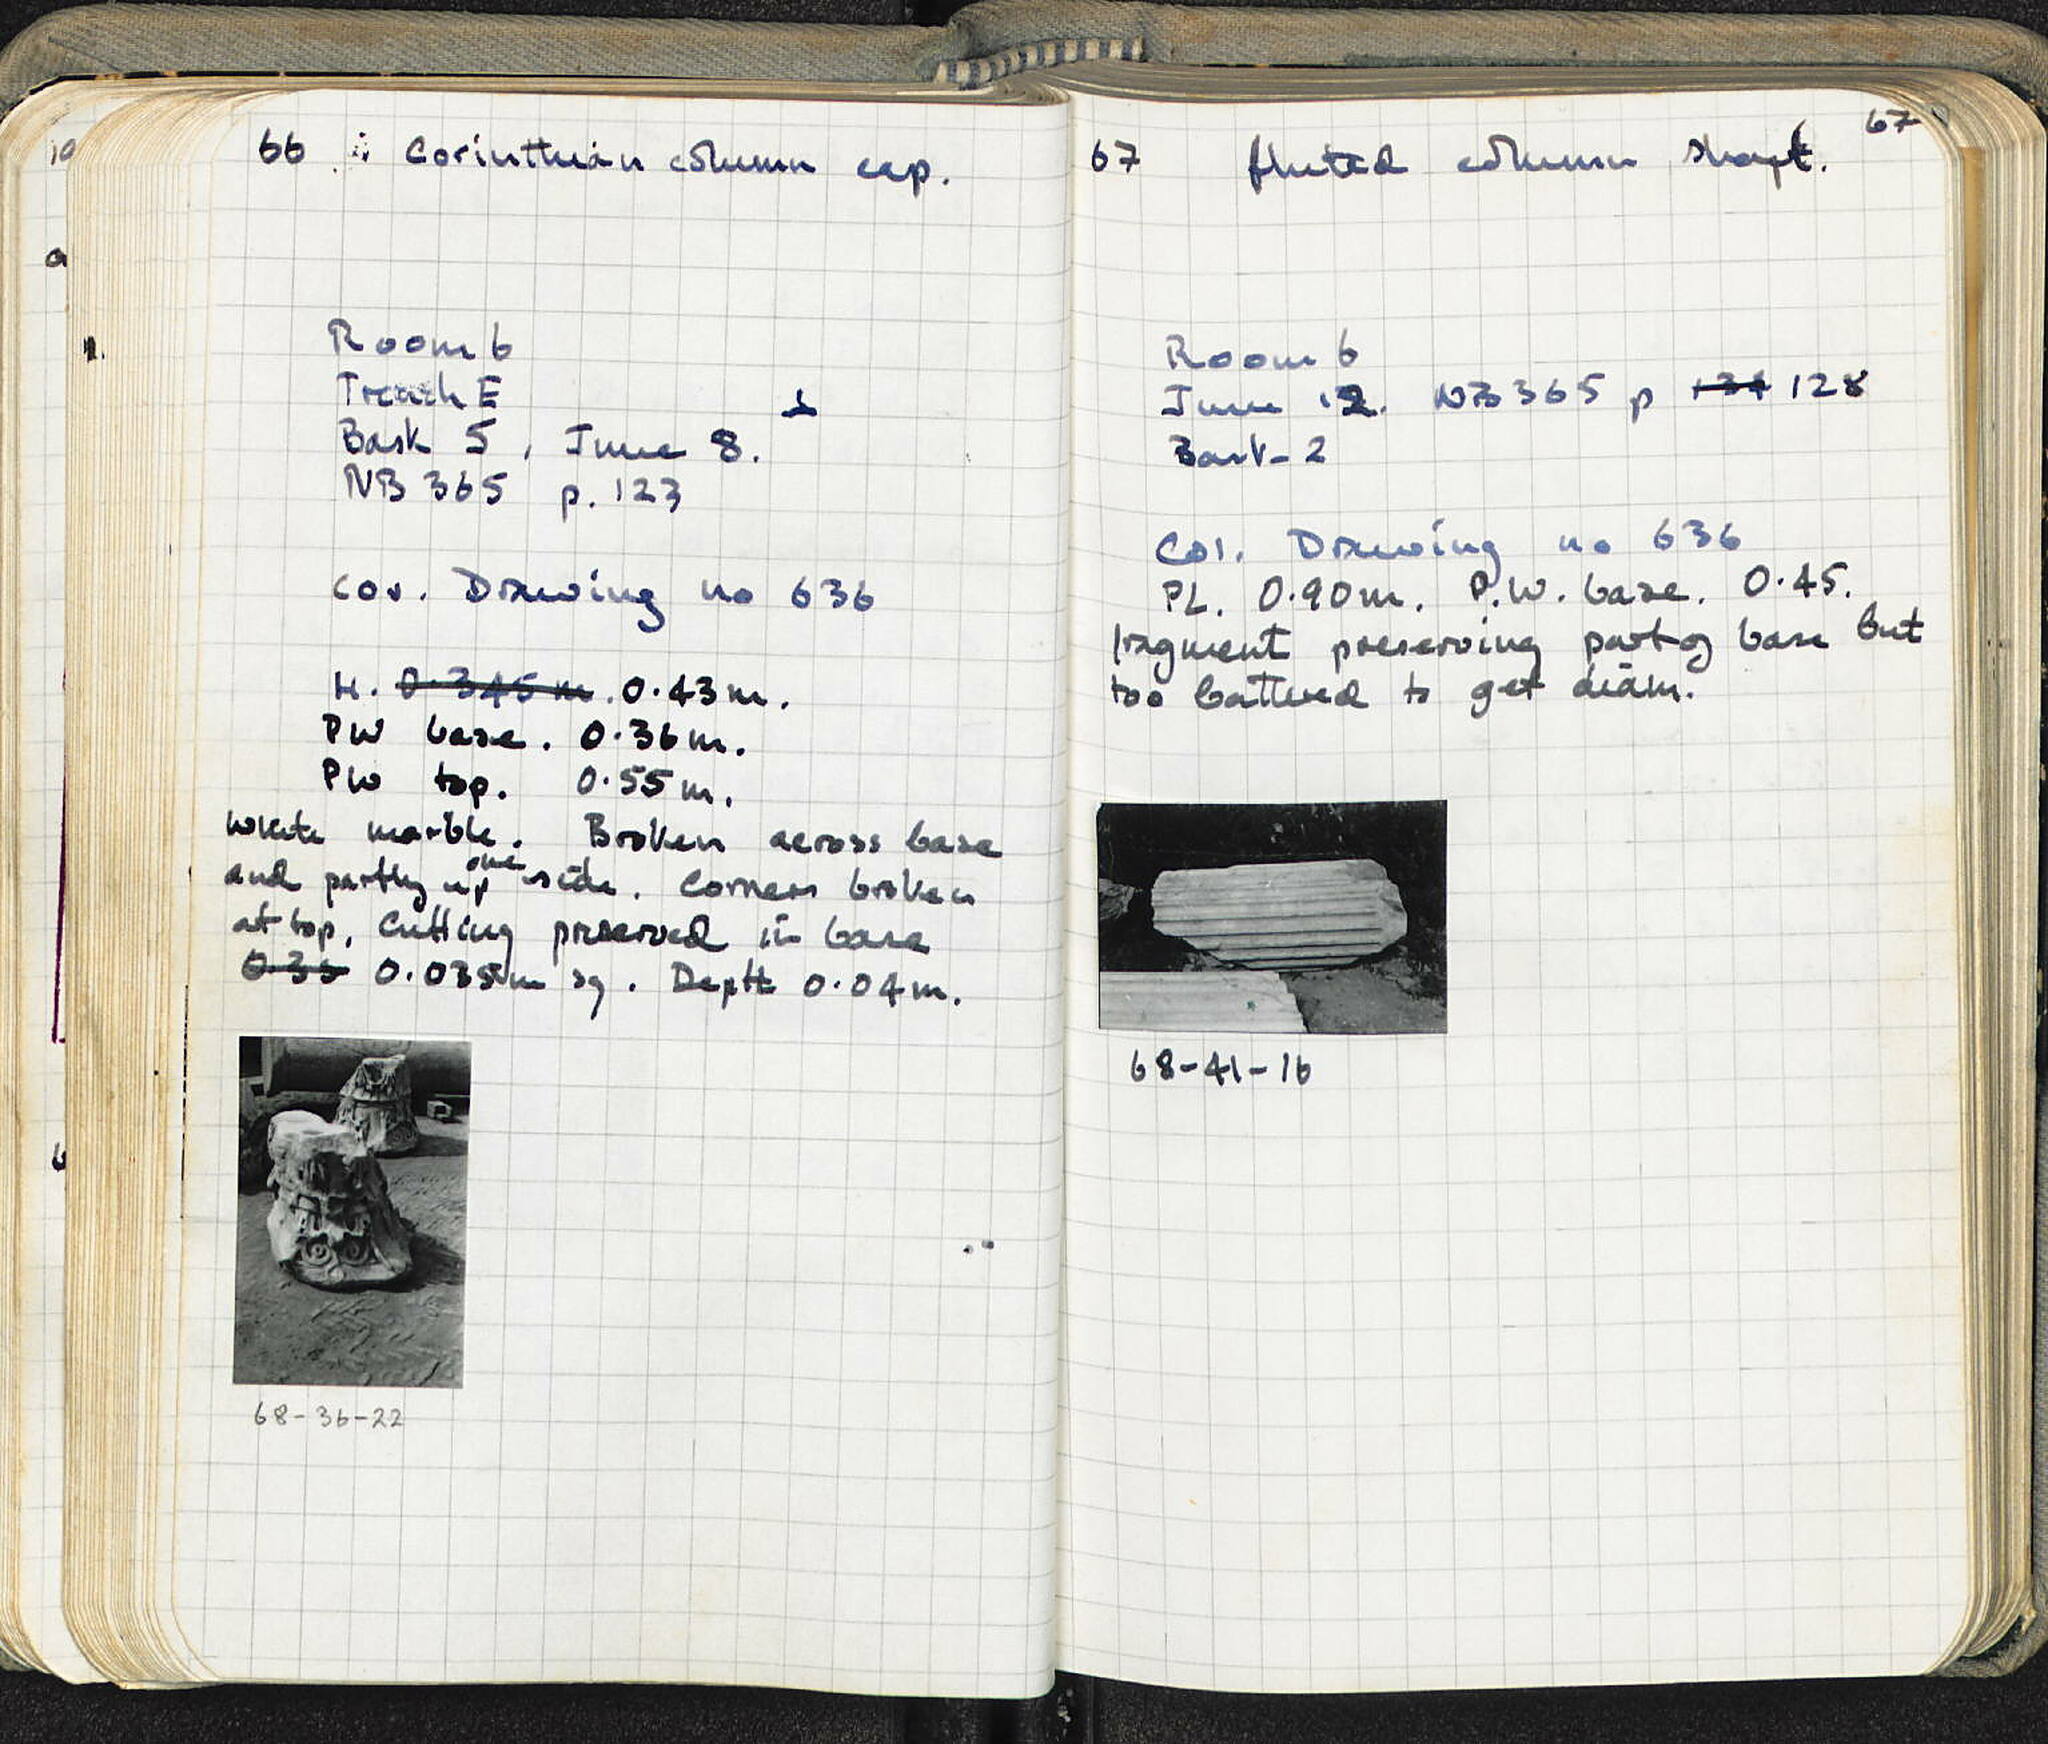 66 Corinthian column cap.
Room 6
Trench E
Bask 5, June 8.
NB 365 p. 123
Cor. Drawing no 636
H. 0.345 m. 0.43 m.
PW base. 0.36 m.
PW top. 0.55 m.
White marble. Broken across base
and partly up one side. Corners broken
at top. Cutting preserved in base
0.35 0.035 m sq. Depth 0.04 m.
68-36-22
67
67 fluted column shaft.
Room 6
June 12. NB 365 p 131 128
Bask-2
Cor. Drawing no 636
PL. 0.90m. P.W. base. 0.45.
fragment preserving part of base but
too battered to get diam.
68-41-16